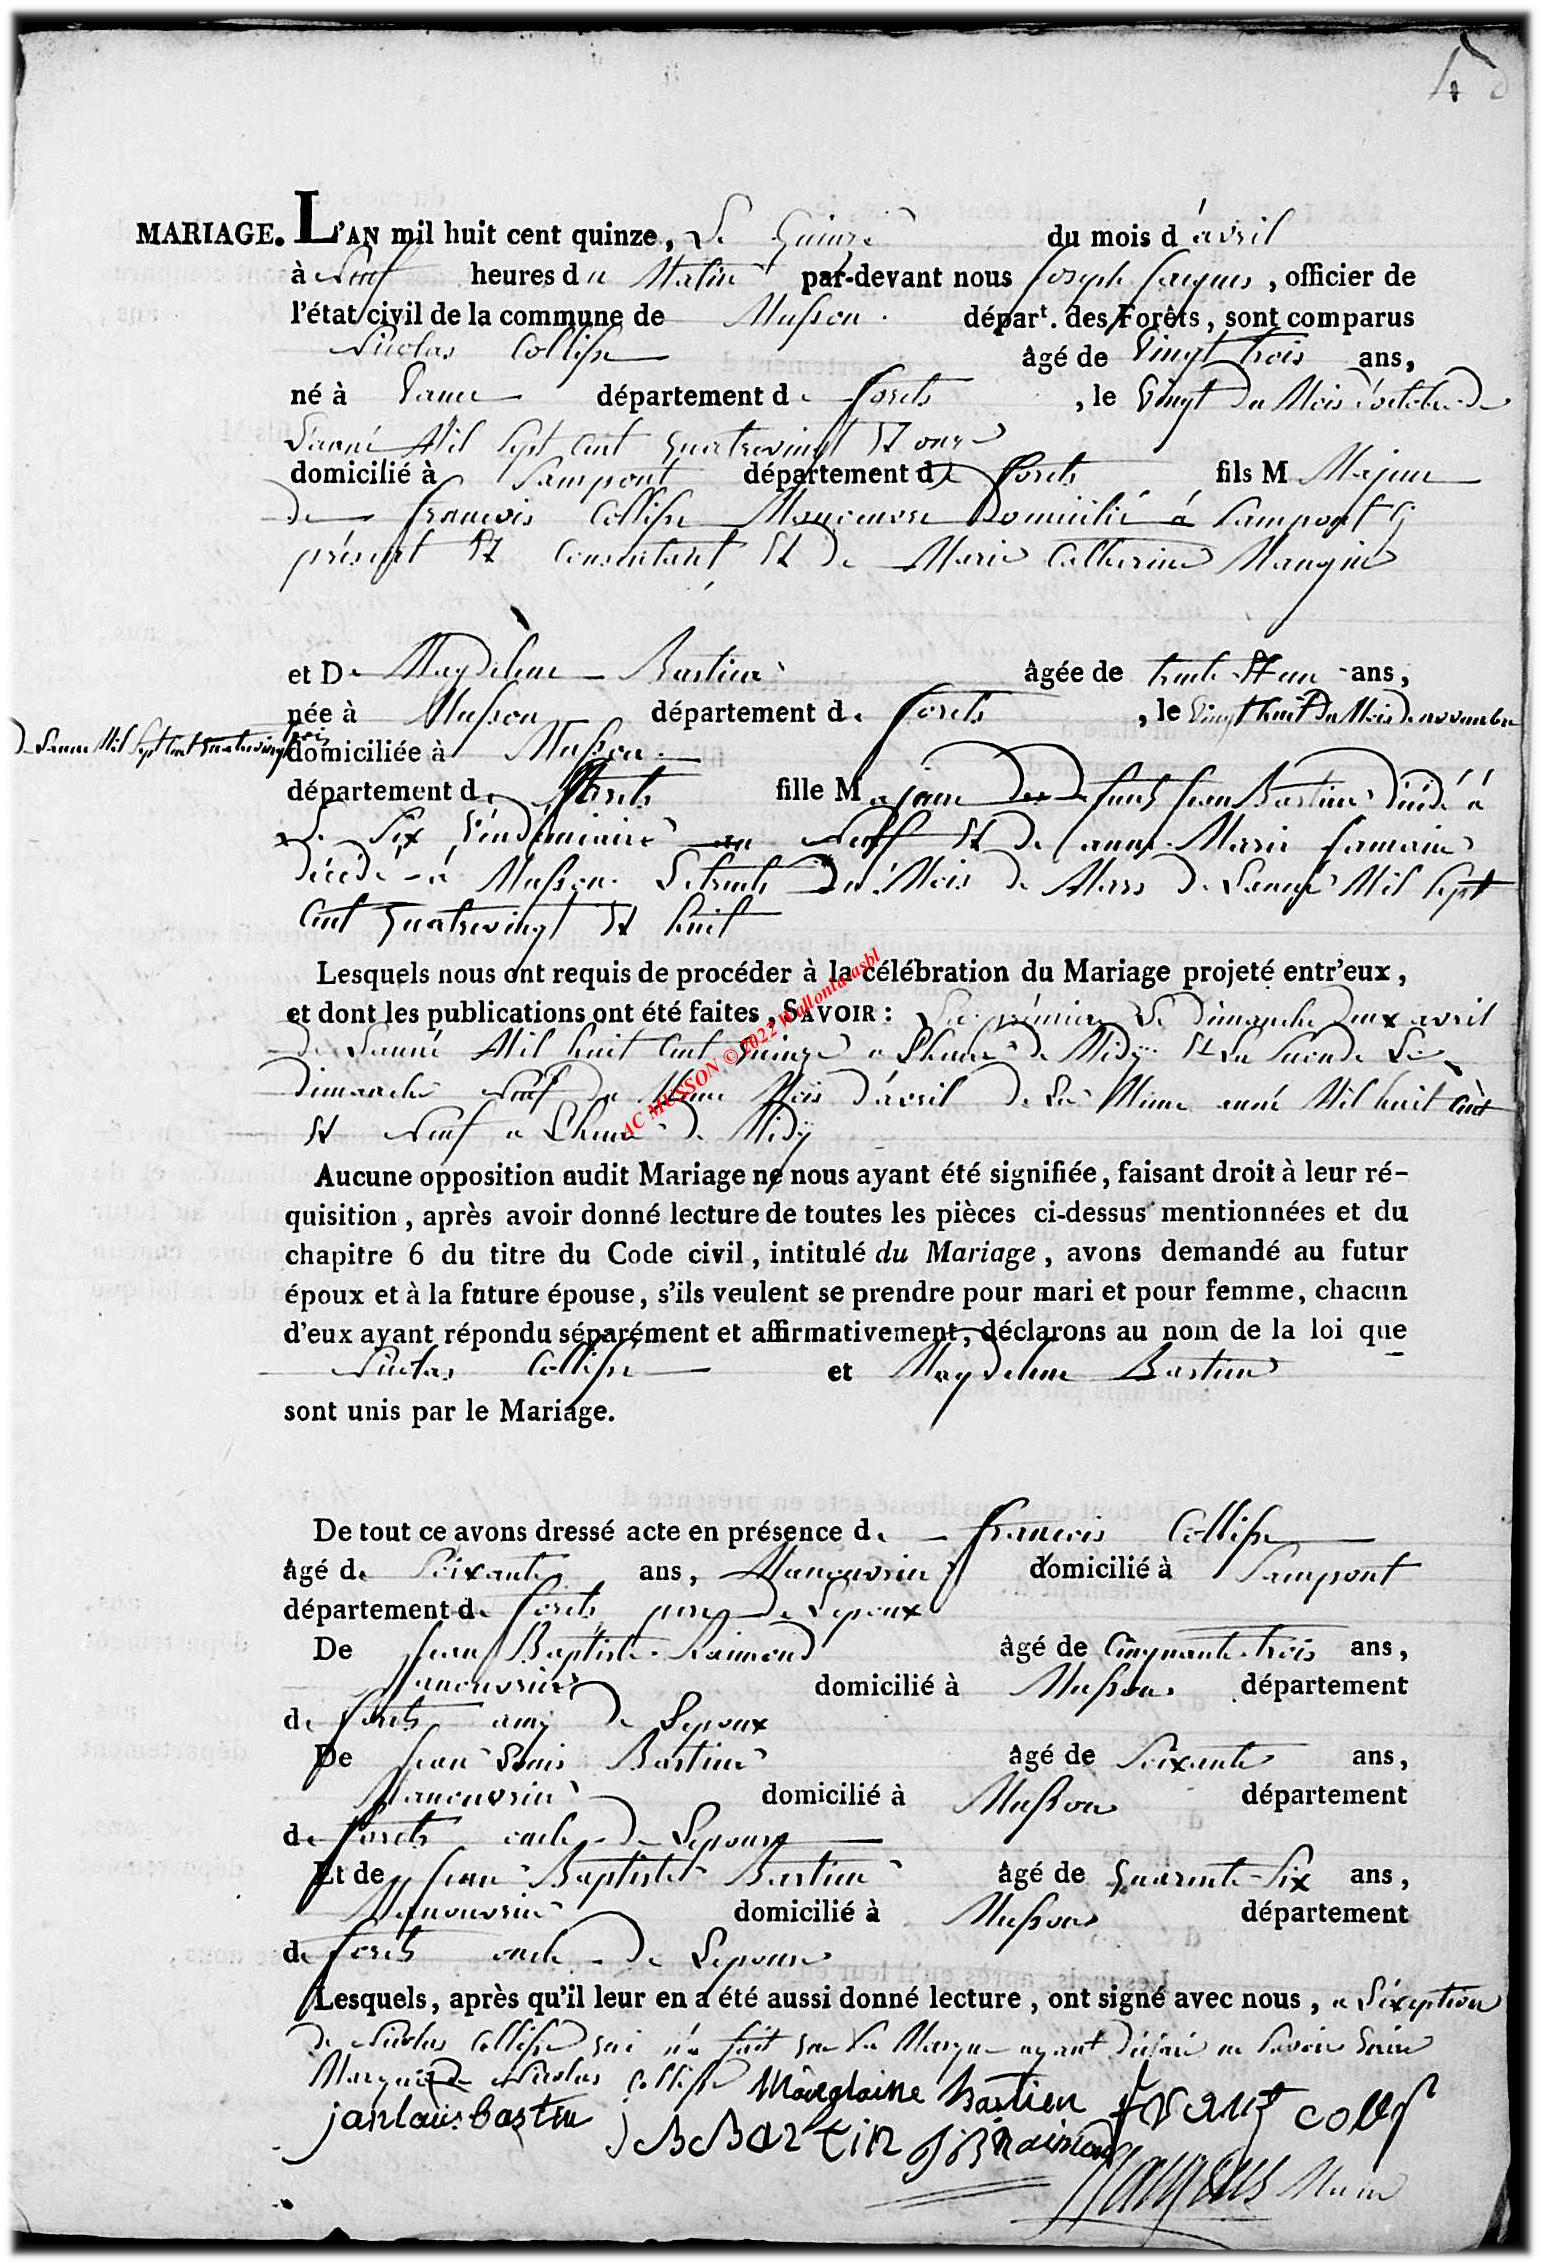 MARIAGE. L'AN mil huit cent quinze, Le Quinze du mois d'avril
à Neuf heures du Matin par-devant nous Joseph Jacques, officier de
l'état civil de la commune de Musson. départ. des Forêts, sont comparus
Nicolas Collisse âgé de Vingt trois ans,
né à département de forets, le Vingt du Mois d'octobre de
L'anné Mil Sept Cent quatrevingt Et onze
domicilié à Sampont département de forets fils Majeur
de francois Collisse Manouvre Domicilié à Sampont Cy
présent Et Consentant Et de Marie Catherine Mangin
et De Magdelene Bastien âgée de trente Et un ans,
née à Musson département de forets, le Vingt huit du Mois de novembre
de Lanne Mil Sept Cent quatrevingt trois
domiciliée à Musson
département de forets fille Majeure de defunt Jean Bastien décédé à
Le Six Vendemiaire an Neuf Et de anne Marie
décédé à Musson Le trente du Mois de Mars de Lanné Mil Sept
Cent quatrevingt Et huit
Lesquels nous ont requis de procéder à la célébration du Mariage projeté entr'eux,
et dont les publications ont été faites, SAVOIR: La premiere Le Dimanche Deux avril
de Lanné Mil huit Cent Quinze a Lheure de Midy Et La Seconde Le
Dimanche Neuf du Meme Mois d'avril de La Meme anné Mil huit Cent
Et Neuf a Lheure de Midy
AC MUSSON © 2022 Wallonia asbl
Aucune opposition audit Mariage ne nous ayant été signifiée, faisant droit à leur ré-
quisition, après avoir donné lecture de toutes les pièces ci-dessus mentionnées et du
chapitre 6 du titre du Code civil, intitulé du Mariage, avons demandé au futur
époux et à la future épouse, s'ils veulent se prendre pour mari et pour femme, chacun
d'eux ayant répondu séparément et affirmativement, déclarons au nom de la loi que
Nicolas Collisse et Magdelene Bastien
sont unis par le Mariage.
De tout ce avons dressé acte en présence de francois Collisse
âgé de Soixante ans, Manouvrier domicilié à Sampont
département de forets pere de Lepoux
De Jean Baptiste Raimond âgé de Cinquante trois ans,
Manouvrier domicilié à Musson département
de forets amy de Lepoux
De Jean Louis Bastien âgé de Soixante ans,
Manouvrier domicilié à Musson département
de forets oncle de Lepouse
Et de Jean Baptiste Bastien âgé de Quarente Six ans,
Manouvrier domicilié à Musson département
de forets oncle de Lepouse
Lesquels, après qu'il leur en a été aussi donné lecture, ont signé avec nous, a L'exeption
de Nicolas Collisse qui n'a fait que Sa Marque ayant Déclaré ne Savoir Ecrire
Marque de Nicolas Collisse Madglaine bastien franc colles
janlouis bastin JB Bastin JB Raimond
Jacques Maire